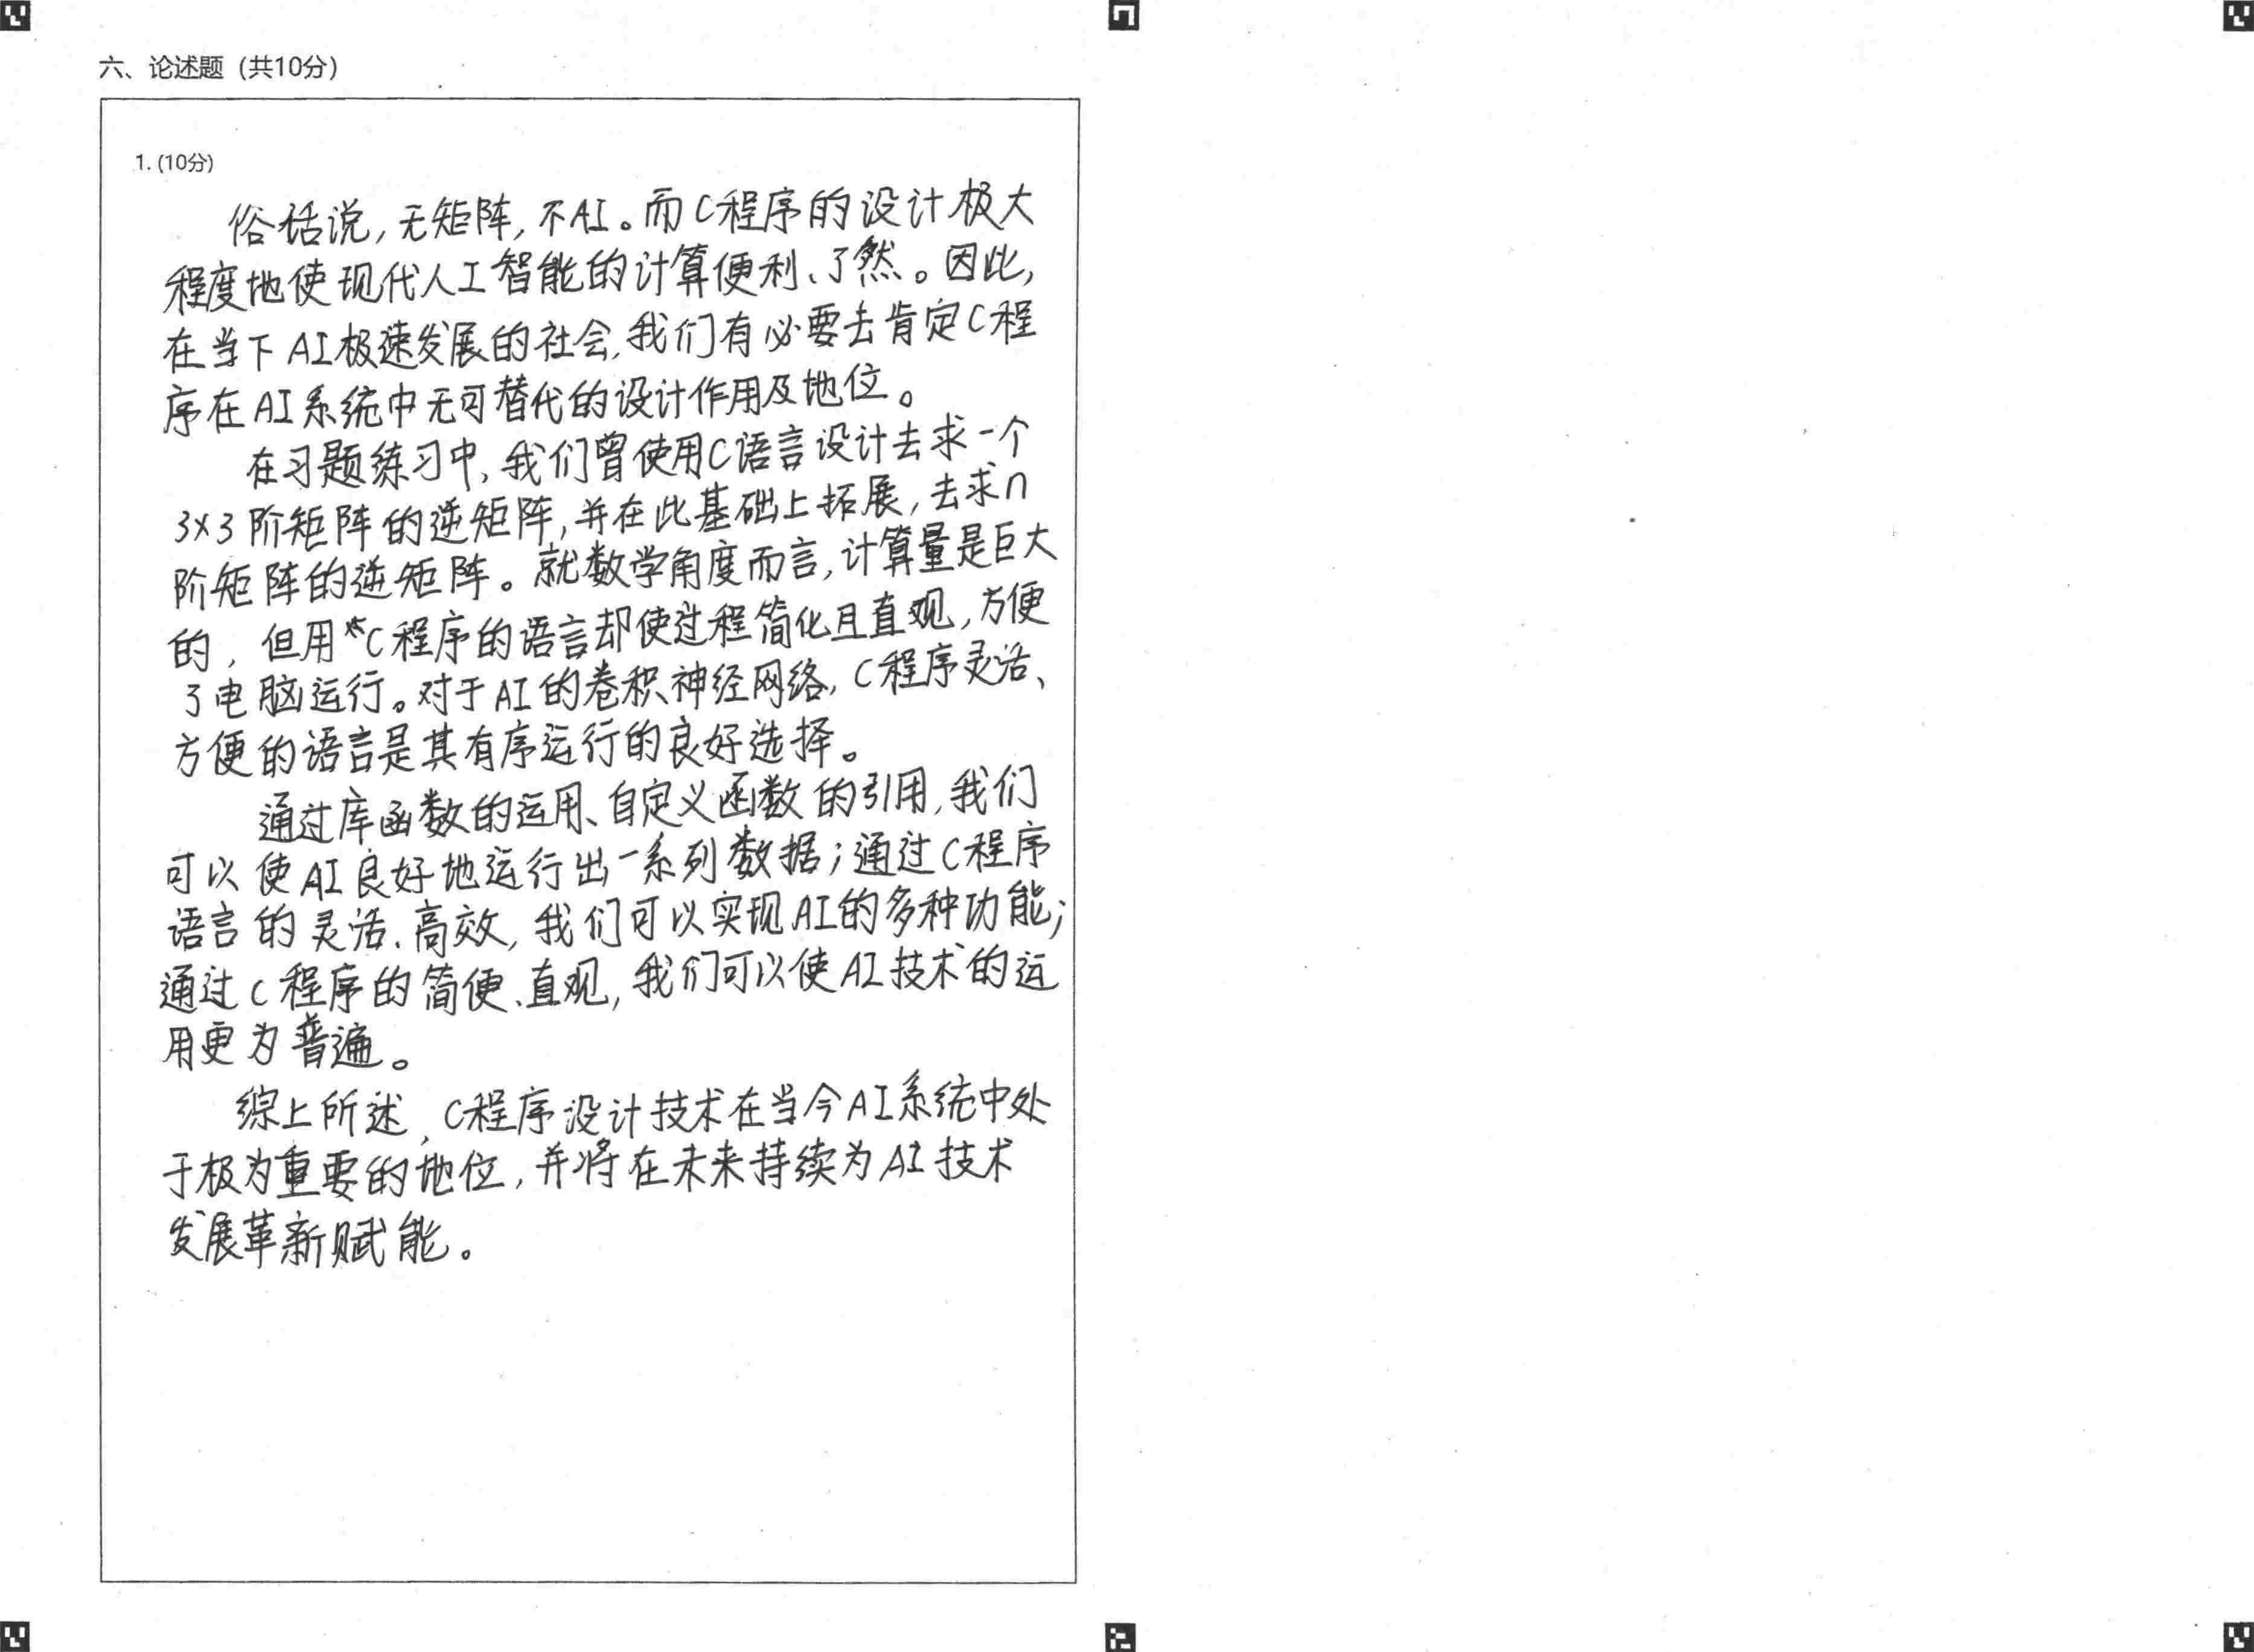 六、论述题（共10分）
1. (10分)
俗话说，无矩阵，不AI。而C程序的设计极大
程度地使现代人工智能的计算便利、了然。因此，
在当下AI极速发展的社会，我们有必要去肯定C程
序在AI系统中无可替代的设计作用及地位。
在习题练习中，我们曾使用C语言设计去求一个
3×3阶矩阵的逆矩阵，并在此基础上拓展，去求n
阶矩阵的逆矩阵。就数学角度而言，计算量是巨大
的，但用C程序的语言却使过程简化且直观，方便
了电脑运行。对于AI的卷积神经网络，C程序灵活、
方便的语言是其有序运行的良好选择。
通过库函数的运用、自定义函数的引用，我们
可以使AI良好地运行出一系列数据；通过C程序
语言的灵活、高效，我们可以实现AI的多种功能；
通过C程序的简便、直观，我们可以使AI技术的运
用更为普遍。
综上所述，C程序设计技术在当今AI系统中处
于极为重要的地位，并将在未来持续为AI技术
发展革新赋能。